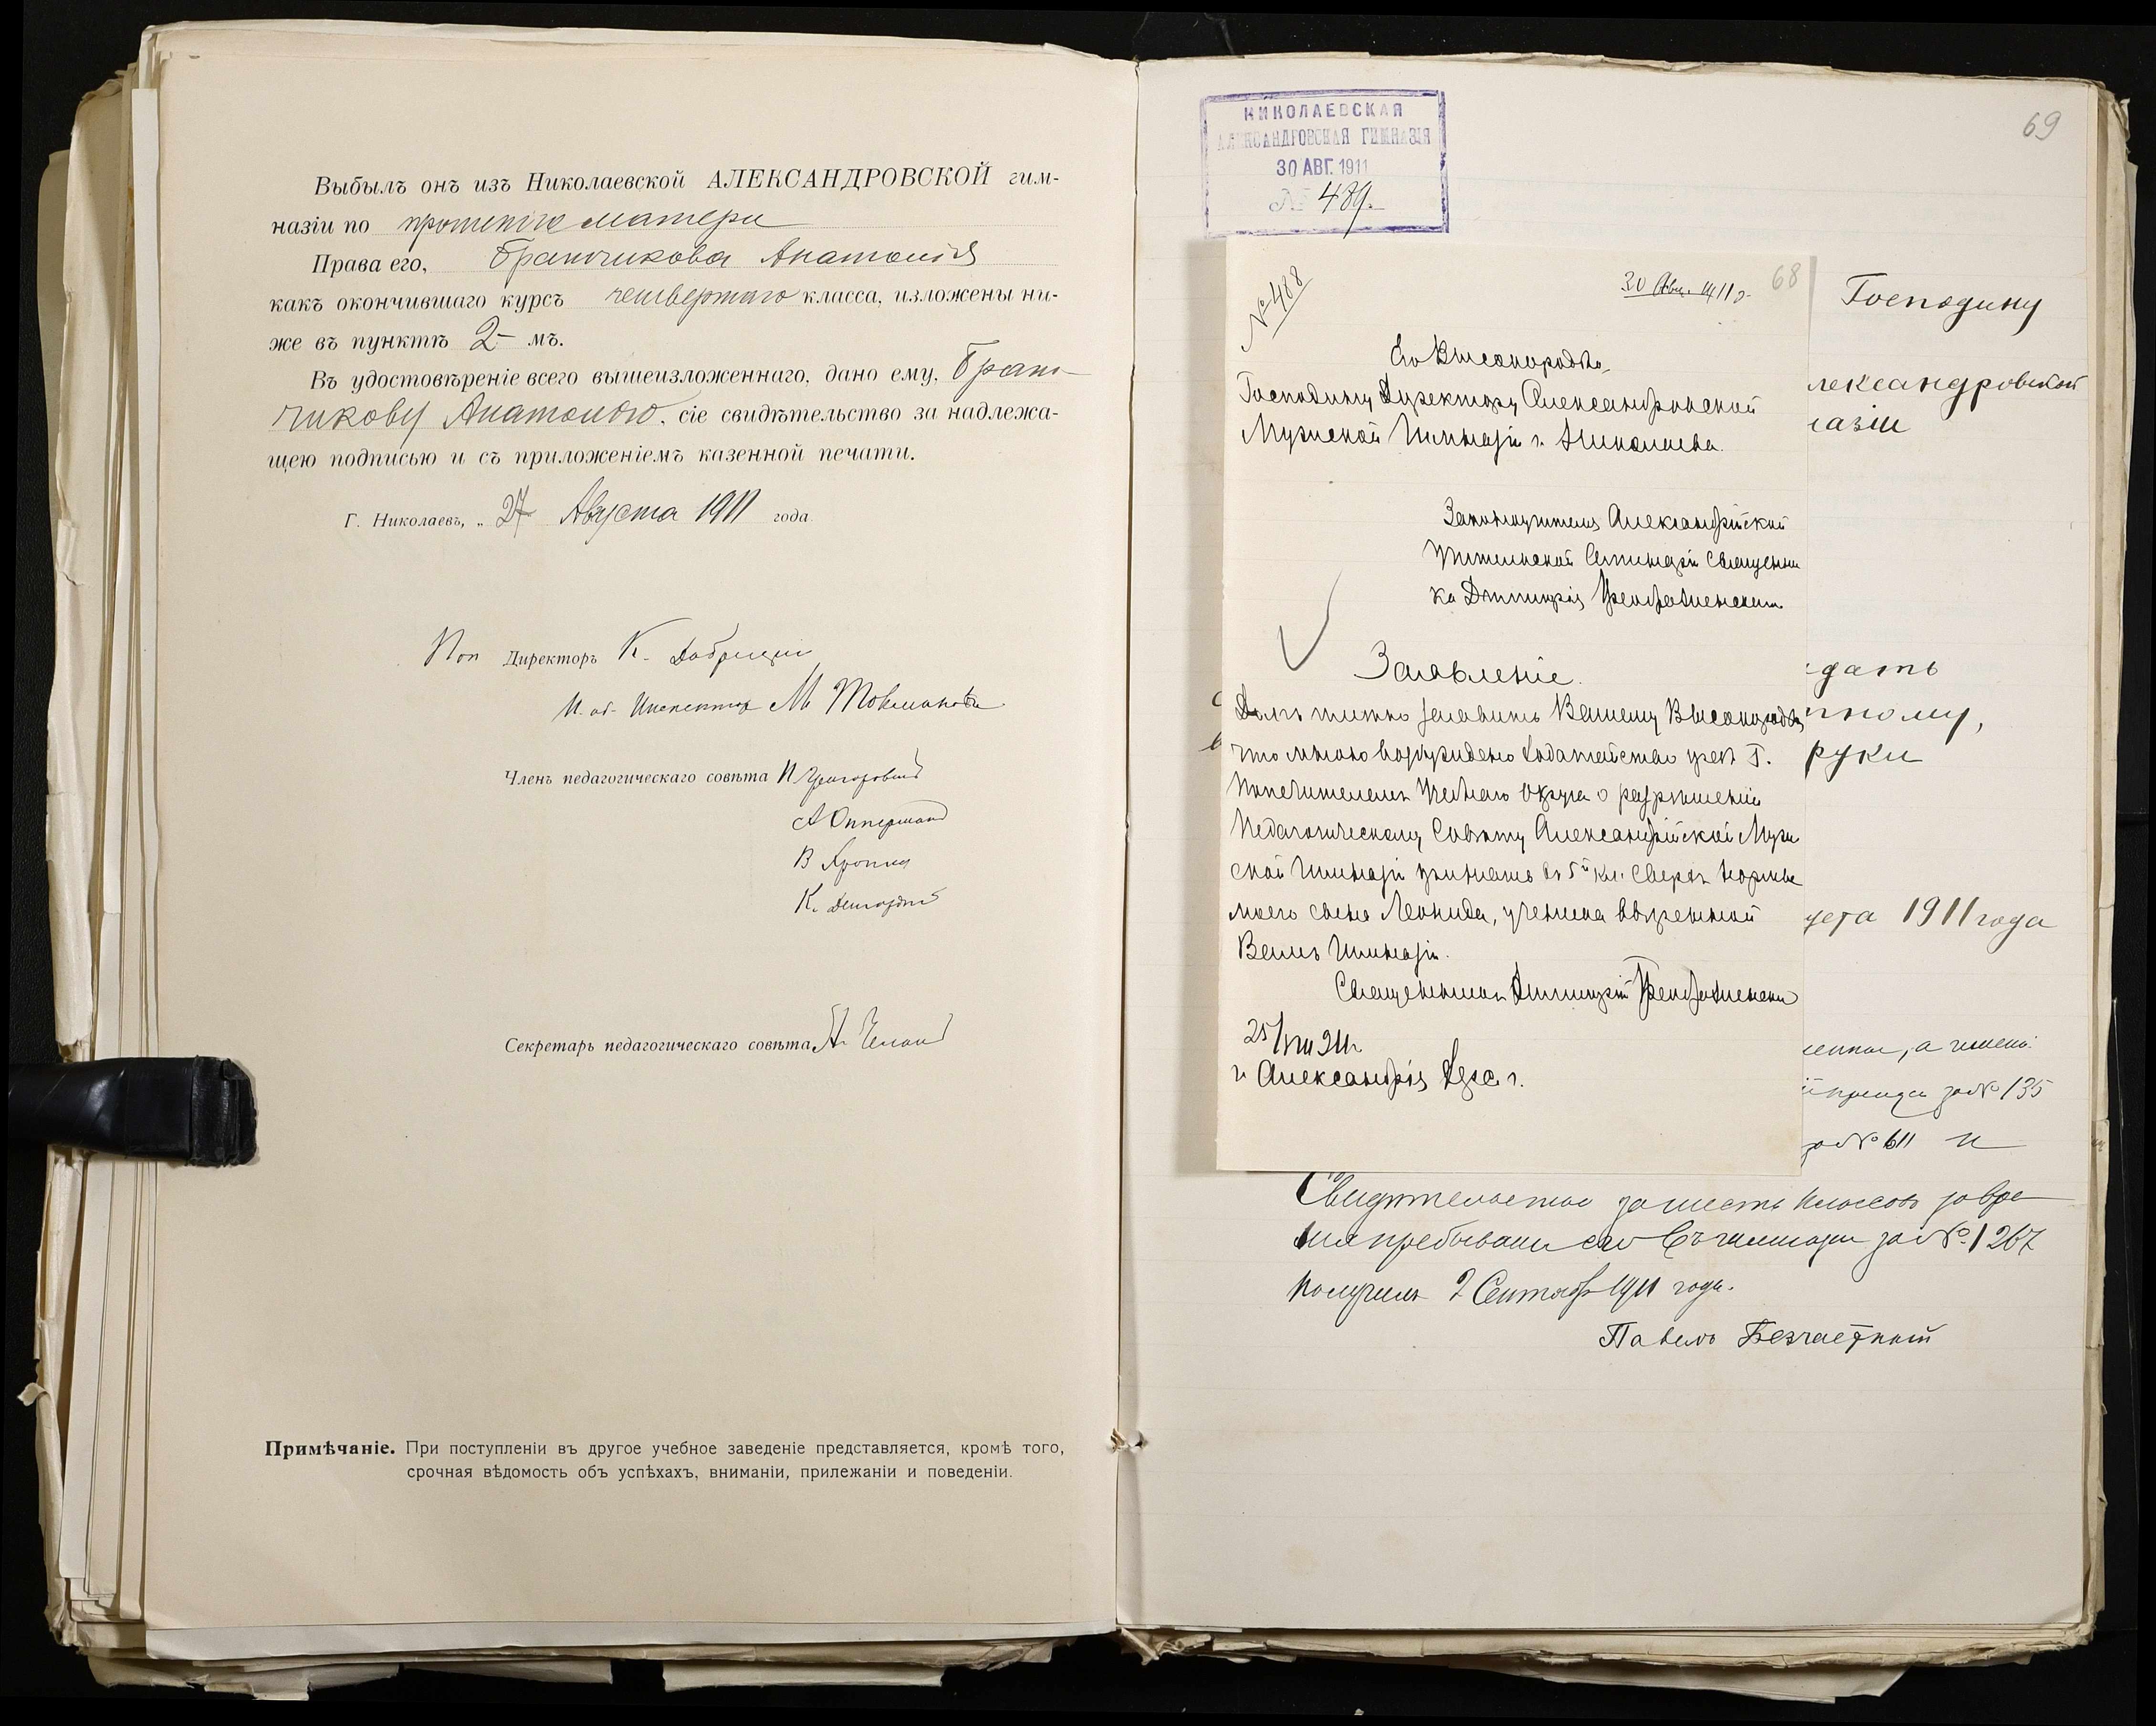 Выбылъ онъ изъ Николаевской АЛЕКСАНДРОВСКОЙ гим-
назіи по прошенію матери
Права его, Бранчикова Анатолія
какъ окончившаго курсъ четвертаго класса, изложены ни-
же въ пунктѣ 2- мъ.
Въ удостовѣреніе всего вышеизложеннаго, дано ему, Бран-
чикову Анатолію, сіе свидѣтельство за надлежа-
щею подписью и съ приложеніемъ казенной печати.
Г. Николаевъ, „ 27 Августа 1911 года.
Директоръ К.
И. об. Инспектора М.
Членъ педагогическаго совѣта П Григоровичъ
А Опперманъ
В
К.
Секретарь педагогическаго совѣта А.
Примѣчаніе. При поступленіи въ другое учебное заведеніе представляется, кромѣ того,
срочная вѣдомость объ успѣхахъ, вниманіи, прилежаніи и поведеніи.
НИКОЛАЕВСКАЯ
АЛЕКСАНДРОВСКАЯ ГИМНАЗІЯ
30 АВГ. 1911
№ 489.
69
№ 488
30 Авг. 1911 г.
68
Его Высокородію,
Господину Директору Александровской
Мужской Гимназіи г. Николаева.
Законоучителя Александрійской
Учительской Семинаріи Священни
ка Димитрія Преображенскаго
Заявленіе.
Долгъ имѣю заявить Вашему Высокородію,
что мною возбуждено ходатайство предъ Г.
Попечителемъ Учебнаго Округа о разрѣшеніи
Педагогическому Совѣту Александрійской Муж
ской Гимназіи принять въ 5й кл. сверхъ нормы
моего сына Леонида, ученика ввѣренной
Вамъ Гимназіи.
Священникъ Димитрій Преображенскій
25/VIII 911 г.
г. Александрія Хер. г.
Господину
лександровской
назіи
дать
тному,
руки
уста 1911 года
за № 135
за № 611 и
Свидѣтельство за шесть классовъ за вре
мя пребыванія его въ гимназіи за № 1267
получилъ 2 Сентября 1911 года.
Павелъ Безчастный